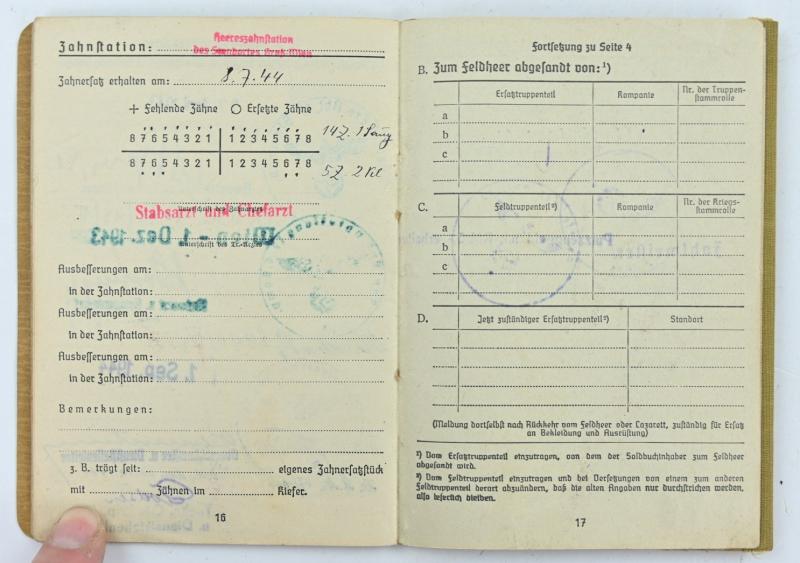 Heereszahnstation
Zahnstation: des Standortes Groß-Wien
Zahnersatz erhalten am: 8.7.44
+ Fehlende Zähne O Ersetzte Zähne
8 7 6 5 4 3 2 1 | 1 2 3 4 5 6 7 8
14 Z. 1
8 7 6 5 4 3 2 1 | 1 2 3 4 5 6 7 8
5 Z 2
Stabsarzt und Chefarzt
Unterschrift des Zahnarztes
Wien - 1. Dez. 1943
Unterschrift des Tr.-Arztes
Ausbesserungen am:
in der Zahnstation:
Ausbesserungen am:
in der Zahnstation:
Ausbesserungen am:
in der Zahnstation:
1. Sep. 1944
Bemerkungen:
z. B. trägt seit: eigenes Zahnersatzstück
mit Zähnen im Kiefer.
16
Fortsetzung zu Seite 4
B. Zum Feldheer abgesandt von:¹)
Ersatztruppenteil
Kompanie
Nr. der Truppen-
stammrolle
a
b
c
C.
Feldtruppenteil²)
Kompanie
Nr. der Kriegs-
stammrolle
a
b
c
Zahlmeister
D.
Jetzt zuständiger Ersatztruppenteil²)
Standort
(Meldung dortselbst nach Rückkehr vom Feldheer oder Lazarett, zuständig für Ersatz
an Bekleidung und Ausrüstung)
¹) Vom Ersatztruppenteil einzutragen, von dem der Soldbuchinhaber zum Feldheer
abgesandt wird.
²) Vom Feldtruppenteil einzutragen und bei Versetzungen von einem zum anderen
Feldtruppenteil derart abzuändern, daß die alten Angaben nur durchstrichen werden,
also leserlich bleiben.
17